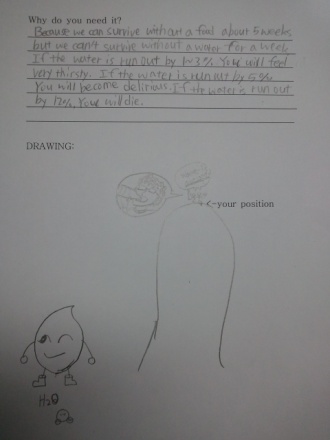 Why do you need it?
Because we can survive without a food about 5 weeks
but we can't survive without a water for a week.
If the water is run out by 1~3%. You will feel
very thirsty. If the water is run out by 5%.
You will become delirious. If the water is run out
by 12%, Your will die.
DRAWING:
<-your position
H2O